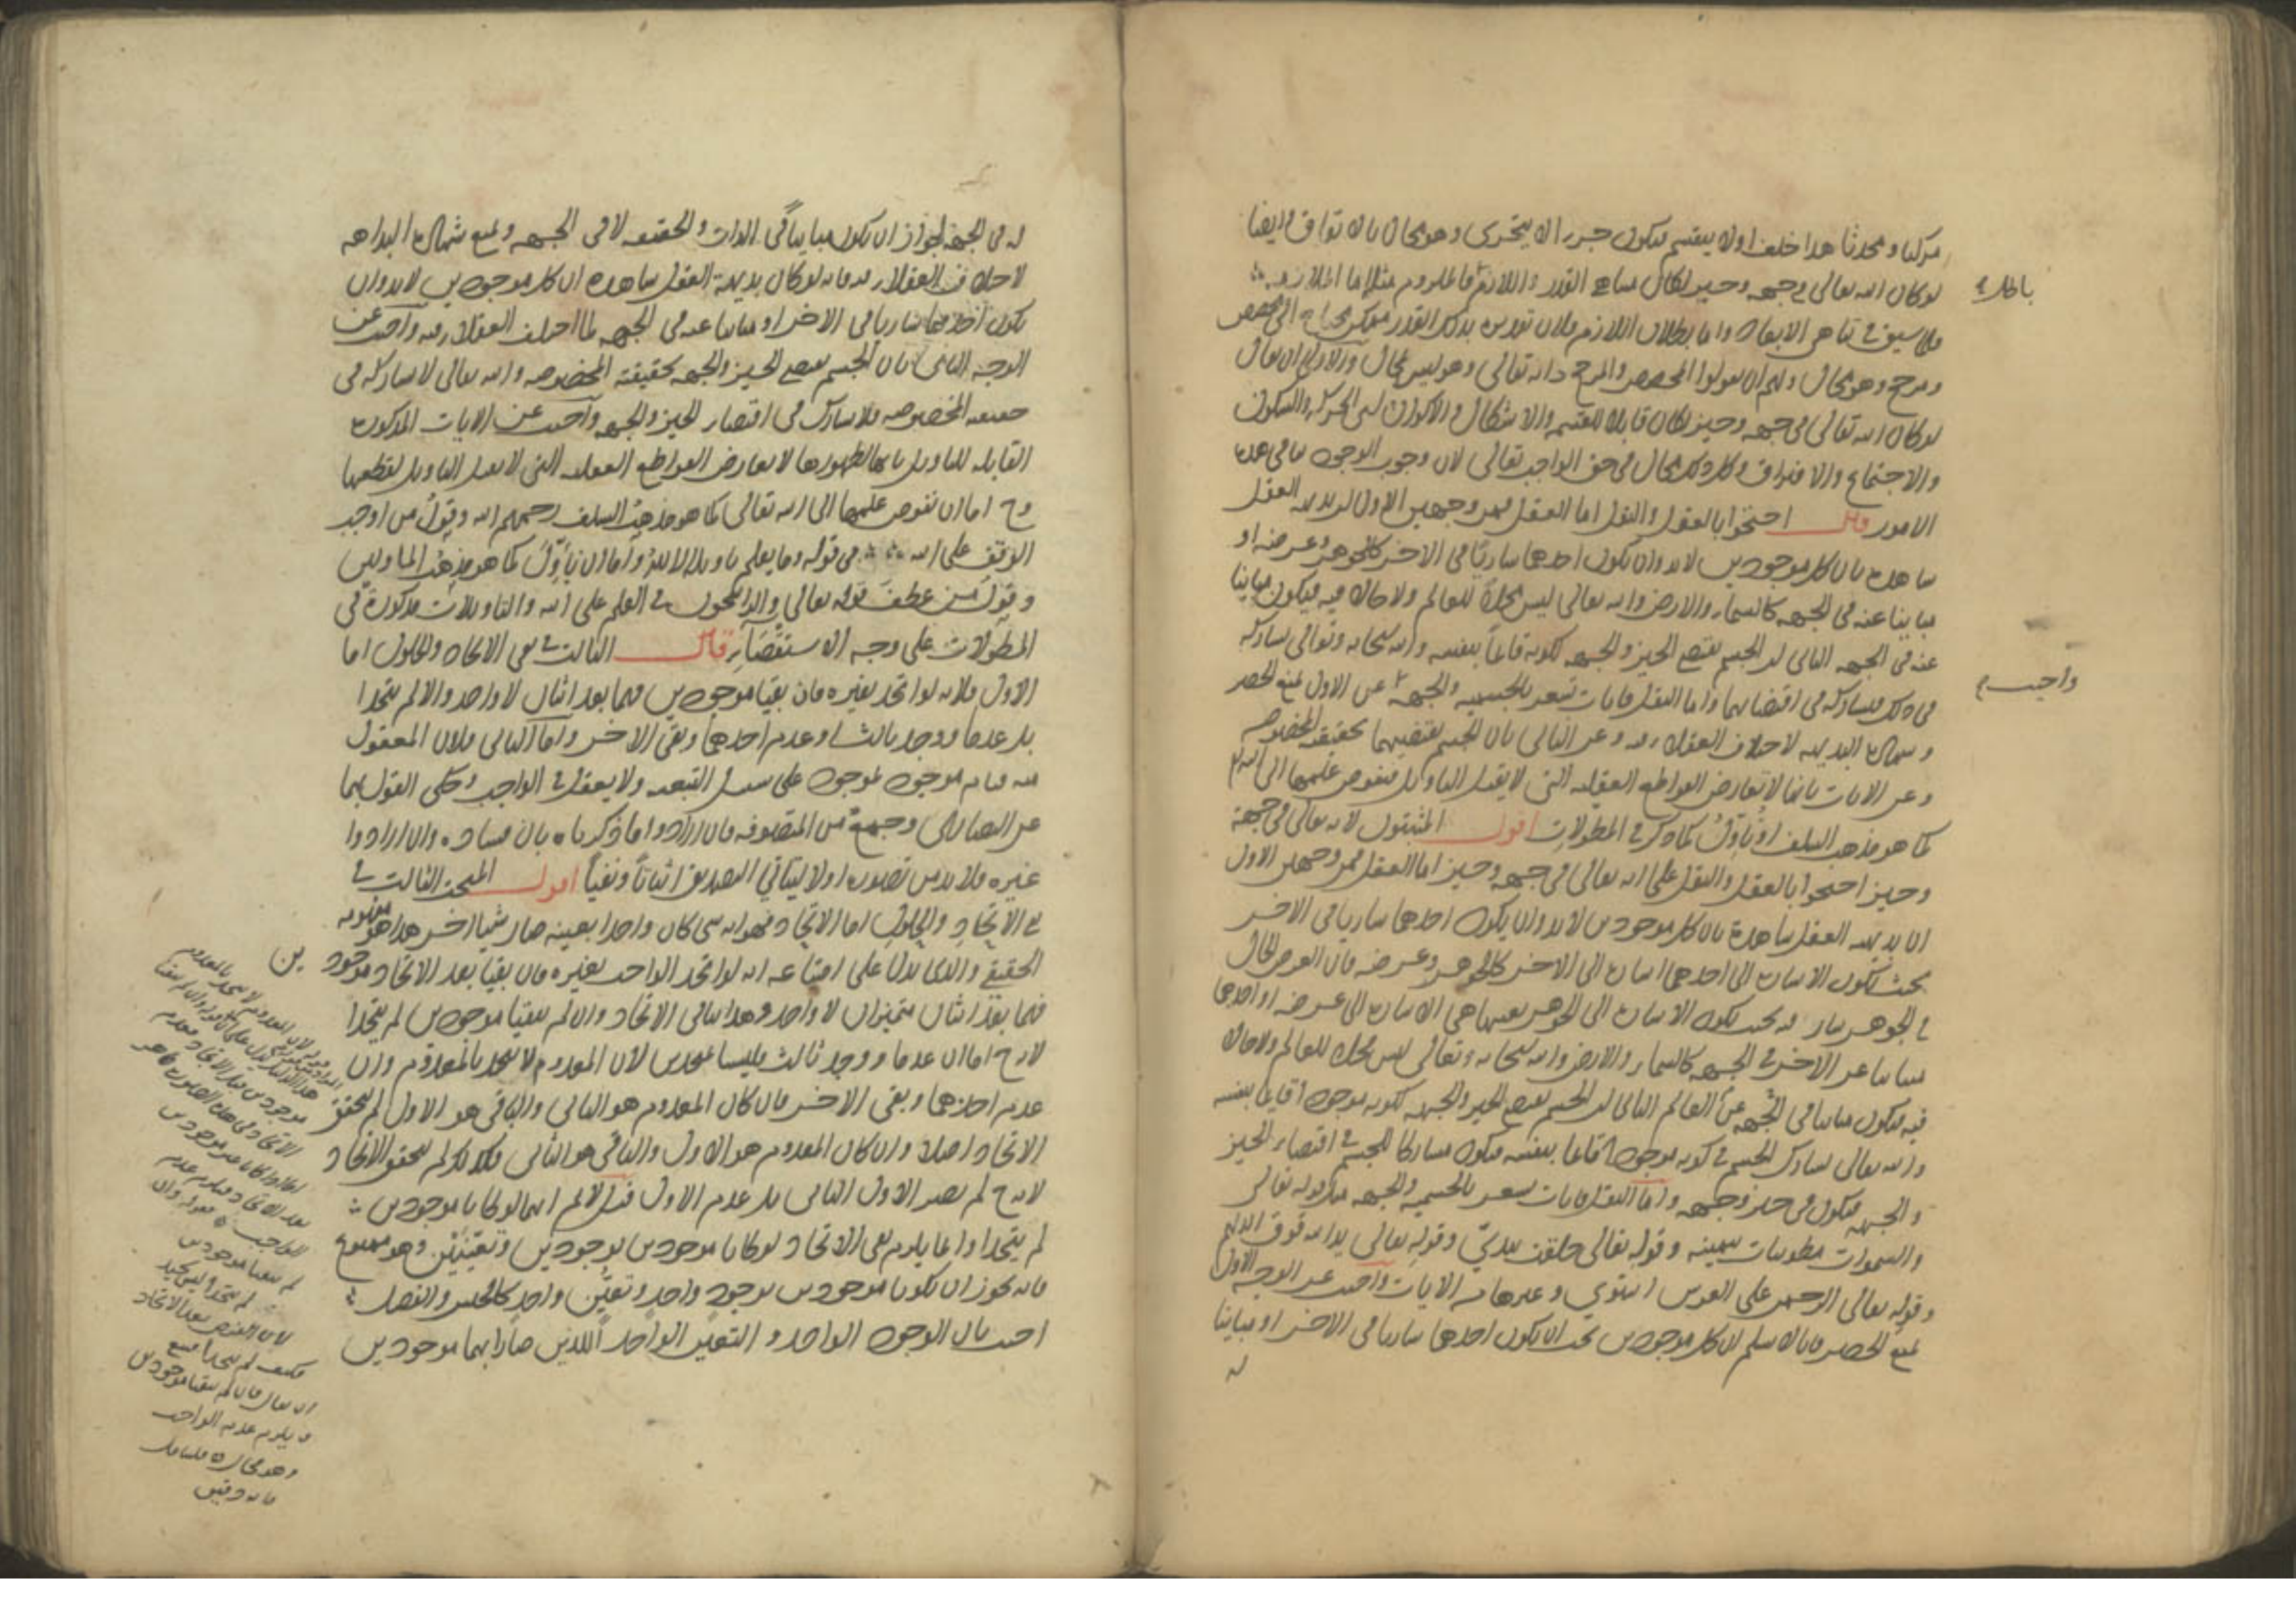 مركبا ومحدثا هذا خلف اولا ينقسم فيكون جزءا لا يتجزى وهو محال بالاتفاق وايضا
لو كان الله تعالى في جهة وحيز لكان متناهي القدر واللازم فالملزوم مثله اما الملازمة
فلما سبق في تناهي الابعاد واما بطلان اللازم فلان تقدره بذلك القدر ممكن محتاج الى مخصص
ومرجح وهو محال ولهم ان يقولوا المخصص والمرجح ذاته تعالى وهو ليس بمحال والاولى ان يقال
لو كان الله تعالى في جهة وحيز لكان قابلا للقسمة والاشكال والاكوان اي الحركة والسكون
والاجتماع والافتراق وكل ذلك محال في حق الواجب تعالى لان وجوب الوجود ينافي هذه
الامور قال احتجوا بالعقل والنقل اما العقل فمن وجهين الاول ان بديهة العقل
شاهدة بان كل موجودين لا بد وان يكون احدهما ساريا في الاخر كالجوهر وعرضه او
مباينا عنه في الجهة كالسماء والارض والله تعالى ليس محلا للعالم ولا حالا فيه فيكون مباينا
عنه في الجهة الثاني ان الجسم يقتضي الحيز والجهة لكونه قائما بنفسه والله سبحانه وتعالى يشاركه
في ذلك فيشاركه في اقتضائهما واما النقل فايات تشعر بالجسمية والجهة عن الاول لمنع الحصر
وشهادة البديهة لاختلاف العقلاء فيه وعن الثاني بان الجسم يقتضيهما بحقيقته المخصوصة
وعن الايات بانها لا تعارض القواطع العقلية التي لا تقبل التاويل فنفوض علمها الى الله
كما هو مذهب السلف او نأول كما ذكر في المطولات اقول المثبتون لانه تعالى في جهة
وحيز احتجوا بالعقل والنقل على انه تعالى في جهة وحيز اما العقل فمن وجهين الاول
ان بديهة العقل شاهدة بان كل موجودين لا بد وان يكون احدهما ساريا في الاخر
بحيث تكون الاشارة الى احدهما اشارة الى الاخر كالجوهر وعرضه فان العرض الحال
في الجوهر سار فيه بحيث تكون الاشارة الى الجوهر بعينها هي الاشارة الى عرضه او احدهما
مباينا عن الاخر في الجهة كالسماء والارض والله سبحانه وتعالى ليس محلا للعالم ولا حالا
فيه فيكون مباينا في الجهة عن العالم الثاني ان الجسم يقتضي الحيز والجهة لكونه موجودا قائما بنفسه
والله تعالى يشارك الجسم في كونه موجودا قائما بنفسه فيكون مشاركا للجسم في اقتضاء الحيز
والجهة فيكون في حيز وجهة واما النقل فايات تشعر بالجسمية والجهة مثل قوله تعالى
والسموات مطويات بيمينه وقوله تعالى خلقت بيدي وقوله تعالى يد الله فوق ايديهم
وقوله تعالى الرحمن على العرش استوى وغيرها من الايات واجيب عن الوجه الاول
بمنع الحصر فانا لا نسلم ان كل موجودين يجب ان يكون احدهما ساريا في الاخر او مباينا
له
باطل
واجيب
له في الجهة لجواز ان يكون مباينا في الذات والحقيقة لا في الجهة وبمنع شهادة البداهة
لاختلاف العقلاء فيه فانه لو كان بديهة العقل شاهدة ان كل موجودين لا بد وان
يكون احدهما ساريا في الاخر او مباينا عنه في الجهة لما اختلف العقلاء فيه واجيب عن
الوجه الثاني بان الجسم يقتضي الحيز والجهة بحقيقته المخصوصة والله تعالى لا يشاركه في
حقيقته المخصوصة فلا يشاركه في اقتضاء الحيز والجهة واجيب عن الايات المذكورة
القابلة للتاويل بانها لظهورها لا تعارض القواطع العقلية التي لا تقبل التاويل لقطعها
وح اما ان نفوض علمها الى الله تعالى كما هو مذهب السلف رحمهم الله وقول من اوجب
الوقف على الله في قوله وما يعلم تاويله الا الله واما ان نأول كما هو مذهب الماولين
وقول من عطف قوله تعالى والراسخون في العلم على الله والتاويلات مذكورة في
المطولات على وجه الاستقصاء قال الثالث في نفي الاتحاد والحلول اما
الاول فلانه لو اتحد بغيره فان بقيا موجودين فهما بعد اثنان لا واحد والا لم يتحدا
بل عدما ووجد ثالث او عدم احدهما وبقي الاخر واما الثاني فلان المعقول
منه قيام موجود بموجود على سبيل التبعية ولا يعقل في الواجب وحكي القول بهما
عن النصارى وجمع من المتصوفة فان ارادوا ما ذكرناه بان فساده وان ارادوا
غيره فلا بد من تصوره اولا ليتاتي التصديق اثباتا ونفيا اقول المبحث الثالث في
نفي الاتحاد والحلول اما الاتحاد فهو انه شي كان واحدا بعينه صار شيا اخر هذا هو مفهومه
الحقيقي والذي يدل على امتناعه انه لو اتحد الواحد بغيره فان بقيا بعد الاتحاد موجود ين
فهما بعد اثنان متميزان لا واحد وهذا ينافي الاتحاد وان لم يبقيا موجودين لم يتحدا
لان ح اما ان عدما ووجد ثالث فليسا بمتحدين لان المعدوم لا يتحد بالمعدوم وان
عدم احدهما وبقي الاخر فان كان المعدوم هو الثاني والباقي هو الاول لم يتحقق
الاتحاد اصلا وان كان المعدوم هو الاول والباقي هو الثاني فكذلك لم يتحقق الاتحاد
لان ح لم يصر الاول الثاني بل عدم الاول قيل لا نم انهما لو كانا موجودين
لم يتحدا وانما يلزم نفي الاتحاد لو كانا موجودين بوجودين وتعينين وهو ممنوع
فانه يجوز ان يكونا موجودين بوجود واحد وتعين واحد كالجنس والفصل
اجيب بان الوجود الواحد والتعين الواحد اللذين صارا بهما موجودين
لم يبقيا موجودين
لم يتحدا
ان يقال فان لم يبقيا موجودين
فيلزم عدم الواجب
وهو محال فليتامل
فانه دقيق